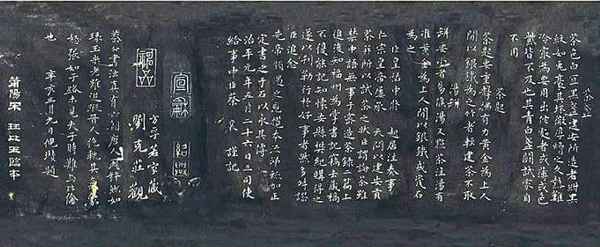 茶盞
茶色白宜黑盞建安所造者紺黑
紋如兔毫其坯微厚熁之久熱難
冷最為要用出他處者或薄或色
皆不及也其青白盞鬬試家自
不用
茶匙
茶匙要重擊拂有力黃金為上人
間以銀鐵為之竹者輕建茶不取
湯瓶
瓶要小者易候湯又點茶注湯有
准黃金為上人間以銀鐵或瓷石
為之
臣皇祐中脩 起居注奏事
仁宗皇帝屢承 天問以建安貢
茶并所以試茶之狀臣謂論茶雖
禁中語無事于密造茶錄二篇上
進後知福州為掌書記竊去藏稿
不復能記知懷安縣樊紀購得之
遂以刊勒行於好事者然多舛謬
臣追念
先帝顧遇之恩攬本流涕輒加正
定書之于石以永其傳
治平元年五月二十六日三司使
給事中臣蔡 襄 謹記
宣和 紹興
劉克莊觀
蔡公書法真有六朝唐人粹然如
也
莆陽宋珏比玉臨本